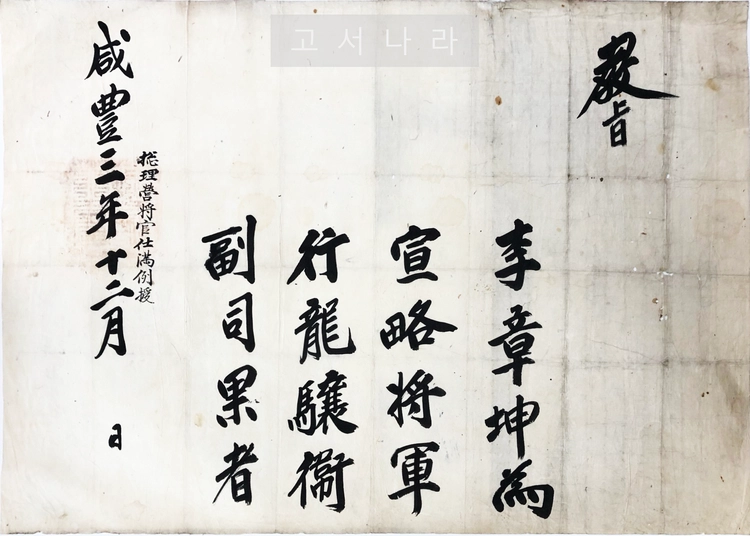 敎旨
李章坤為
宣略将軍
行龍驤衛
副司果者
咸豊三年十二月 日
摠理營将官仕満例授
고서나라